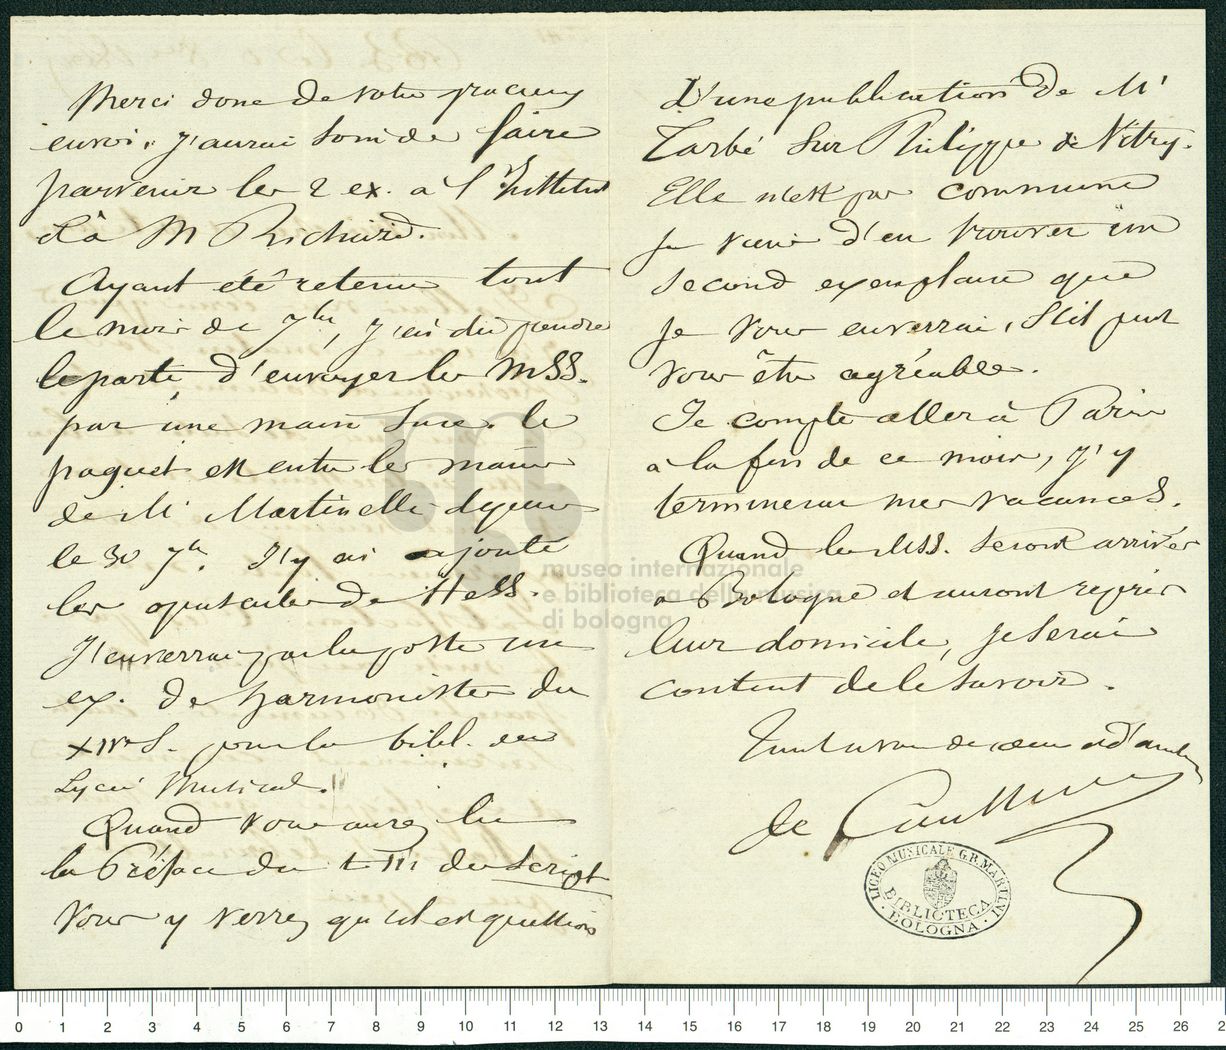 Merci donc de votre gracieux
envoi. J'aurai soin de faire
parvenir les 2 ex. a l'Institut
et à M Richard.
Ayant été retenu tout
le mois de 7bre, j'ai dû prendre
le parti d'envoyer les MSS.
par une main sure. le
paquet est entre les mains
de M. Martinelli depuis
le 30 7bre. J'y ai ajouté
les opuscules de Hess.
J'enverrai par la poste un
ex. des harmonistes du
XIVe S. pour la bibl. du
Lycée Musical.
Quand vous aurez lu
la Préface du t. III des Script
vous y verrez qu'il est question
D'une publication de Mr
Tarbé sur Philippe de Vitry.
Elle n'est pas commune
Je viens d'en trouver un
second exemplaire que
je vous enverrai, s'il peut
vous être agréable.
Je compte aller à Paris
a la fin de ce mois, j'y
terminerai mes vacances.
Quand les MSS. seront arrivés
a Bologne et auront repris
leur domicile, je serai
content de le savoir.
Tout a vous de cœur et d'
de Coussemaker
LICEO MUSICALE G.B. MARTINI
BIBLIOTECA
BOLOGNA
museo internazionale
e biblioteca della musica
di bologna
0 1 2 3 4 5 6 7 8 9 10 11 12 13 14 15 16 17 18 19 20 21 22 23 24 25 26 2